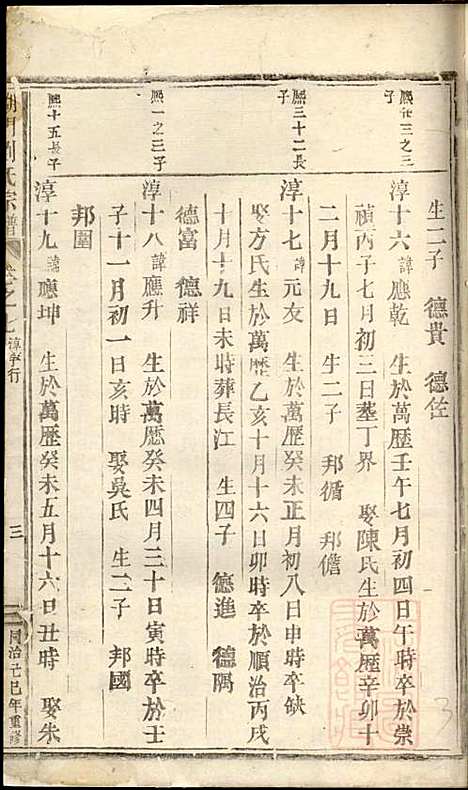 生二子 德貴 德佐
熙廿三之三子
淳十六諱應乾 生於萬歷壬午七月初四日午時卒於崇
禎丙子七月初三日塟丁界 娶陳氏生於萬歷辛卯十
二月十九日 生二子 邦循 邦儋
熙三十二長子
淳十七諱元友 生於萬歷癸未正月初八日申時卒缺
娶方氏生於萬歷乙亥十月十六日卯時卒於順治丙戌
十月十九日未時葬長江 生四子 德進 德隅
德富 德祥
熙一之三子
淳十八諱應升 生於萬歷癸未四月三十日寅時卒於壬
子十一月初一日亥時 娶吳氏 生二子 邦國
邦圍
熙十五長子
淳十九諱應坤 生於萬歷癸未五月十六日丑時 娶朱
劉氏宗譜 卷之七 淳字行 三 同治己巳年重修